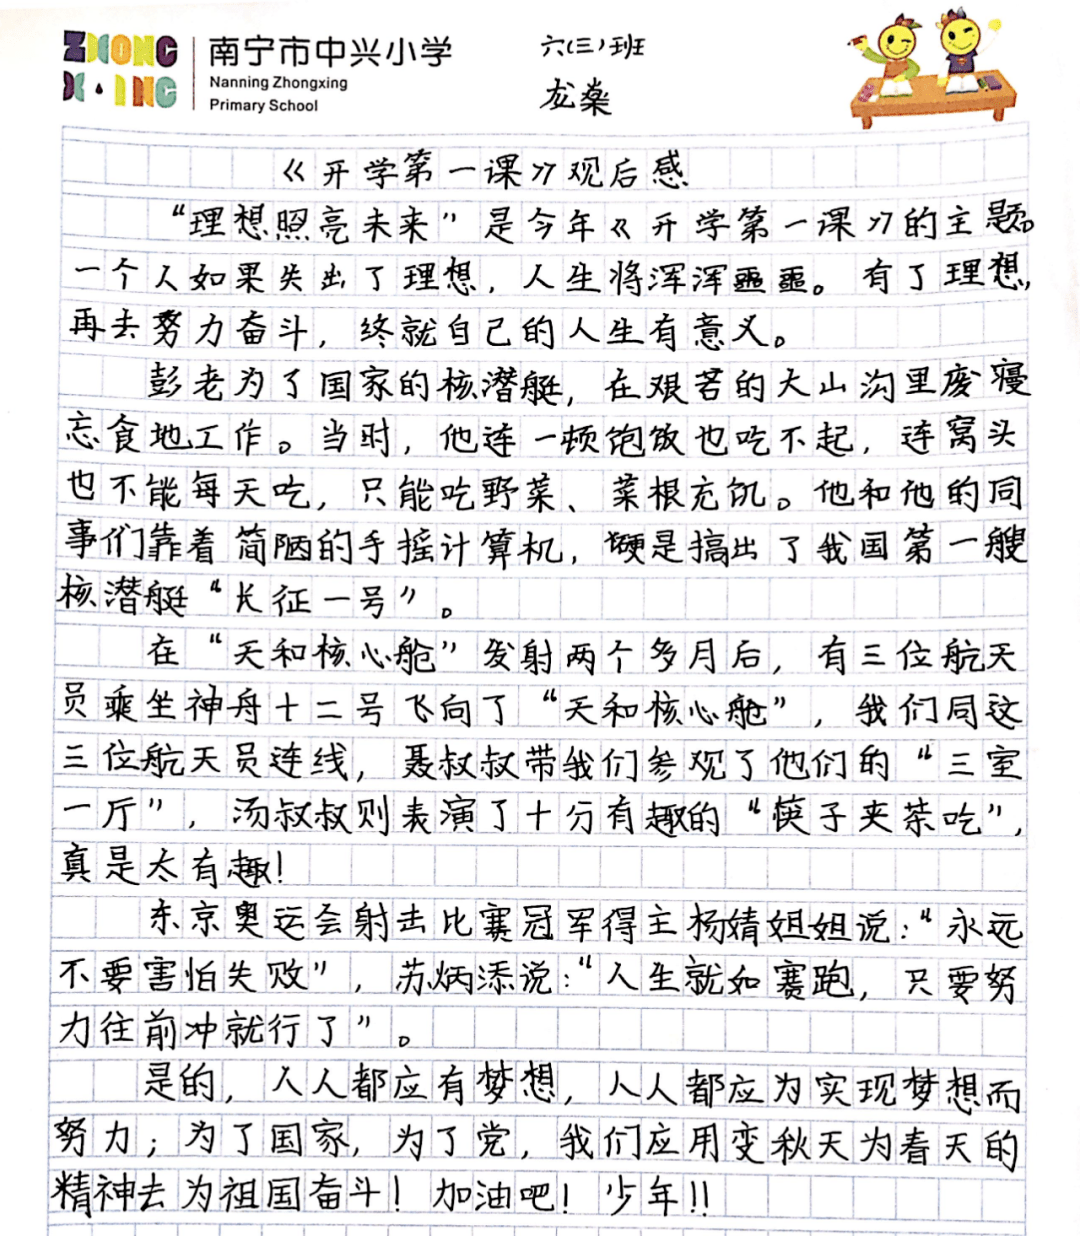 ZHONG
XING
南宁市中兴小学
Nanning Zhongxing
Primary School
六(三)班
龙燊
《开学第一课》观后感
“理想照亮未来”是今年《开学第一课》的主题。
一个人如果失出了理想，人生将浑浑噩噩。有了理想，
再去努力奋斗，终就自己的人生有意义。
彭老为了国家的核潜艇，在艰苦的大山沟里废寝
忘食地工作。当时，他连一顿饱饭也吃不起，连窝头
也不能每天吃，只能吃野菜、菜根充饥。他和他的同
事们靠着简陋的手摇计算机，硬是搞出了我国第一艘
核潜艇“长征一号”。
在“天和核心舱”发射两个多月后，有三位航天
员乘坐神舟十二号飞向了“天和核心舱”，我们同这
三位航天员连线，聂叔叔带我们参观了他们的“三室
一厅”，汤叔叔则表演了十分有趣的“筷子夹茶吃”，
真是太有趣！
东京奥运会射击比赛冠军得主杨婧姐姐说：“永远
不要害怕失败”，苏炳添说：“人生就如赛跑，只要努
力往前冲就行了”。
是的，人人都应有梦想，人人都应为实现梦想而
努力；为了国家，为了党，我们应用变秋天为春天的
精神去为祖国奋斗！加油吧！少年!!